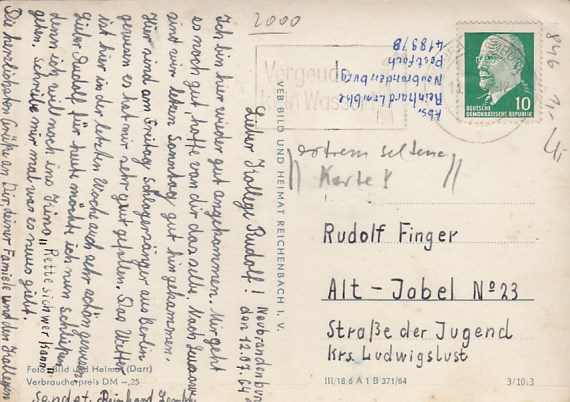 2000
Abs.
Reinhard Lembke
Neubrandenburg
Postfach
4189/B
DEUTSCHE
DEMOKRATISCHE REPUBLIK
10
846
Vergeude
kein Wasser
extrem seltene
Karte!
Rudolf Finger
Alt-Jabel No 23
Straße der Jugend
Krs. Ludwigslust
III/18 6 A 1 B 371/64
3/10,3
VEB BILD UND HEIMAT REICHENBACH I. V.
Neubrandenburg
den 12.07.64
Lieber Kollege Rudolf!
Ich bin hier wieder gut angekommen. Mir geht
es noch gut, hoffe von dir dasselbe. Nach
sind wir letzen Sonntag gut hingekommen.
Hier sind am Freitag Schlagersänger aus Berlin
gewesen es hat mir sehr gut gefallen. Das Wetter
ist hier in der letzten Woche auch sehr schön gewesen
Lieber Rudolf für heute möchte ich nun schließen,
denn ich will noch ins Kino „Rette sich wer kann“
gehen. Schreibe mir mal was es neues gibt.
Die herzlichsten Grüße an Dir, deiner Familie und den Kollegen
Sendet Reinhard Lembke
Foto: Bild und Heimat (Darr)
Verbraucherpreis DM -,25